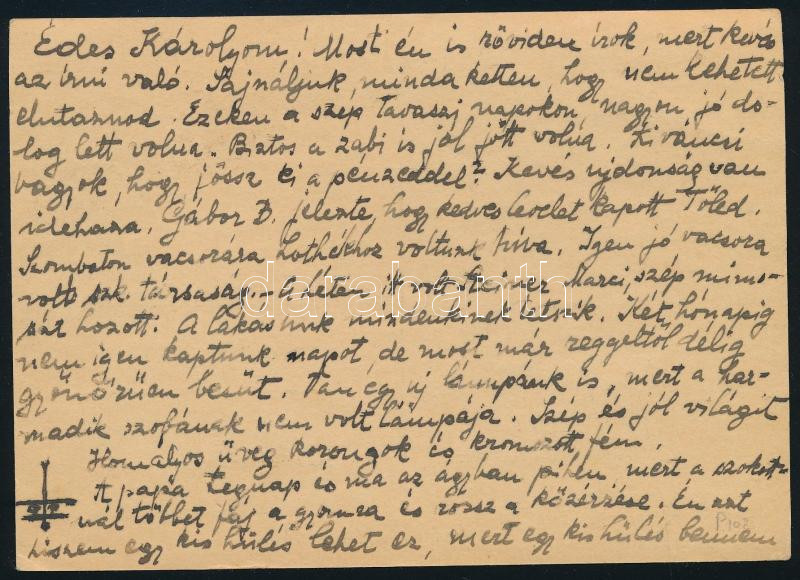 Édes Károlyom! Most én is röviden írok, mert kevés
az írni való. Sajnáljuk, mindaketten, hogy nem lehetett
elutaznod. Ezeken a szép tavaszi napokon, nagyon jó do-
log lett volna. Biztos a zabi is jól jött volna. Kiváncsi
vagyok, hogy jössz ki a pénzeddel? Kevés ujdonság van
idehaza. Gábor B. jelezte, hogy kedves levelet kapott Tőled.
Szombaton vacsorára Hothékhoz voltunk híva. Igen jó vacsora
volt szk. társaság. - A héten itt volt Steiner Marci, szép mimo-
zát hozott. A lakásunk mindenkinek tetszik. Két hónapig
nem igen kaptunk napot, de most már reggeltől délig
gyönörüen besüt. Van egy új lámpánk is, mert a har-
madik szobának nem volt lámpája. Szép és jól világít
Homályos üveg korongok és krómozott fém.
A papa tegnap és ma az ágyban pihen, mert a szokott-
nál többet fáj a gyomra és rossz a közérzése. Én azt
hiszem egy kis hülés lehet ez, mert egy kis hülés bennem
darabanth